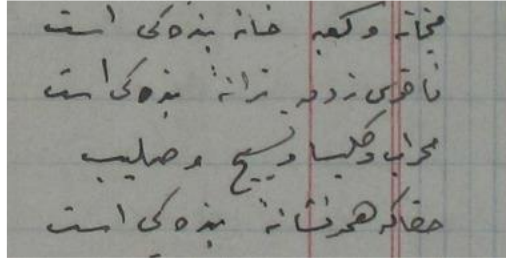 میخانه و کعبه خانه بندگی است
ناقوس زدن ترانهٔ بندگی است
محراب و کلیسا و تسبیح و صلیب
حقا که همه نشانهٔ بندگی است